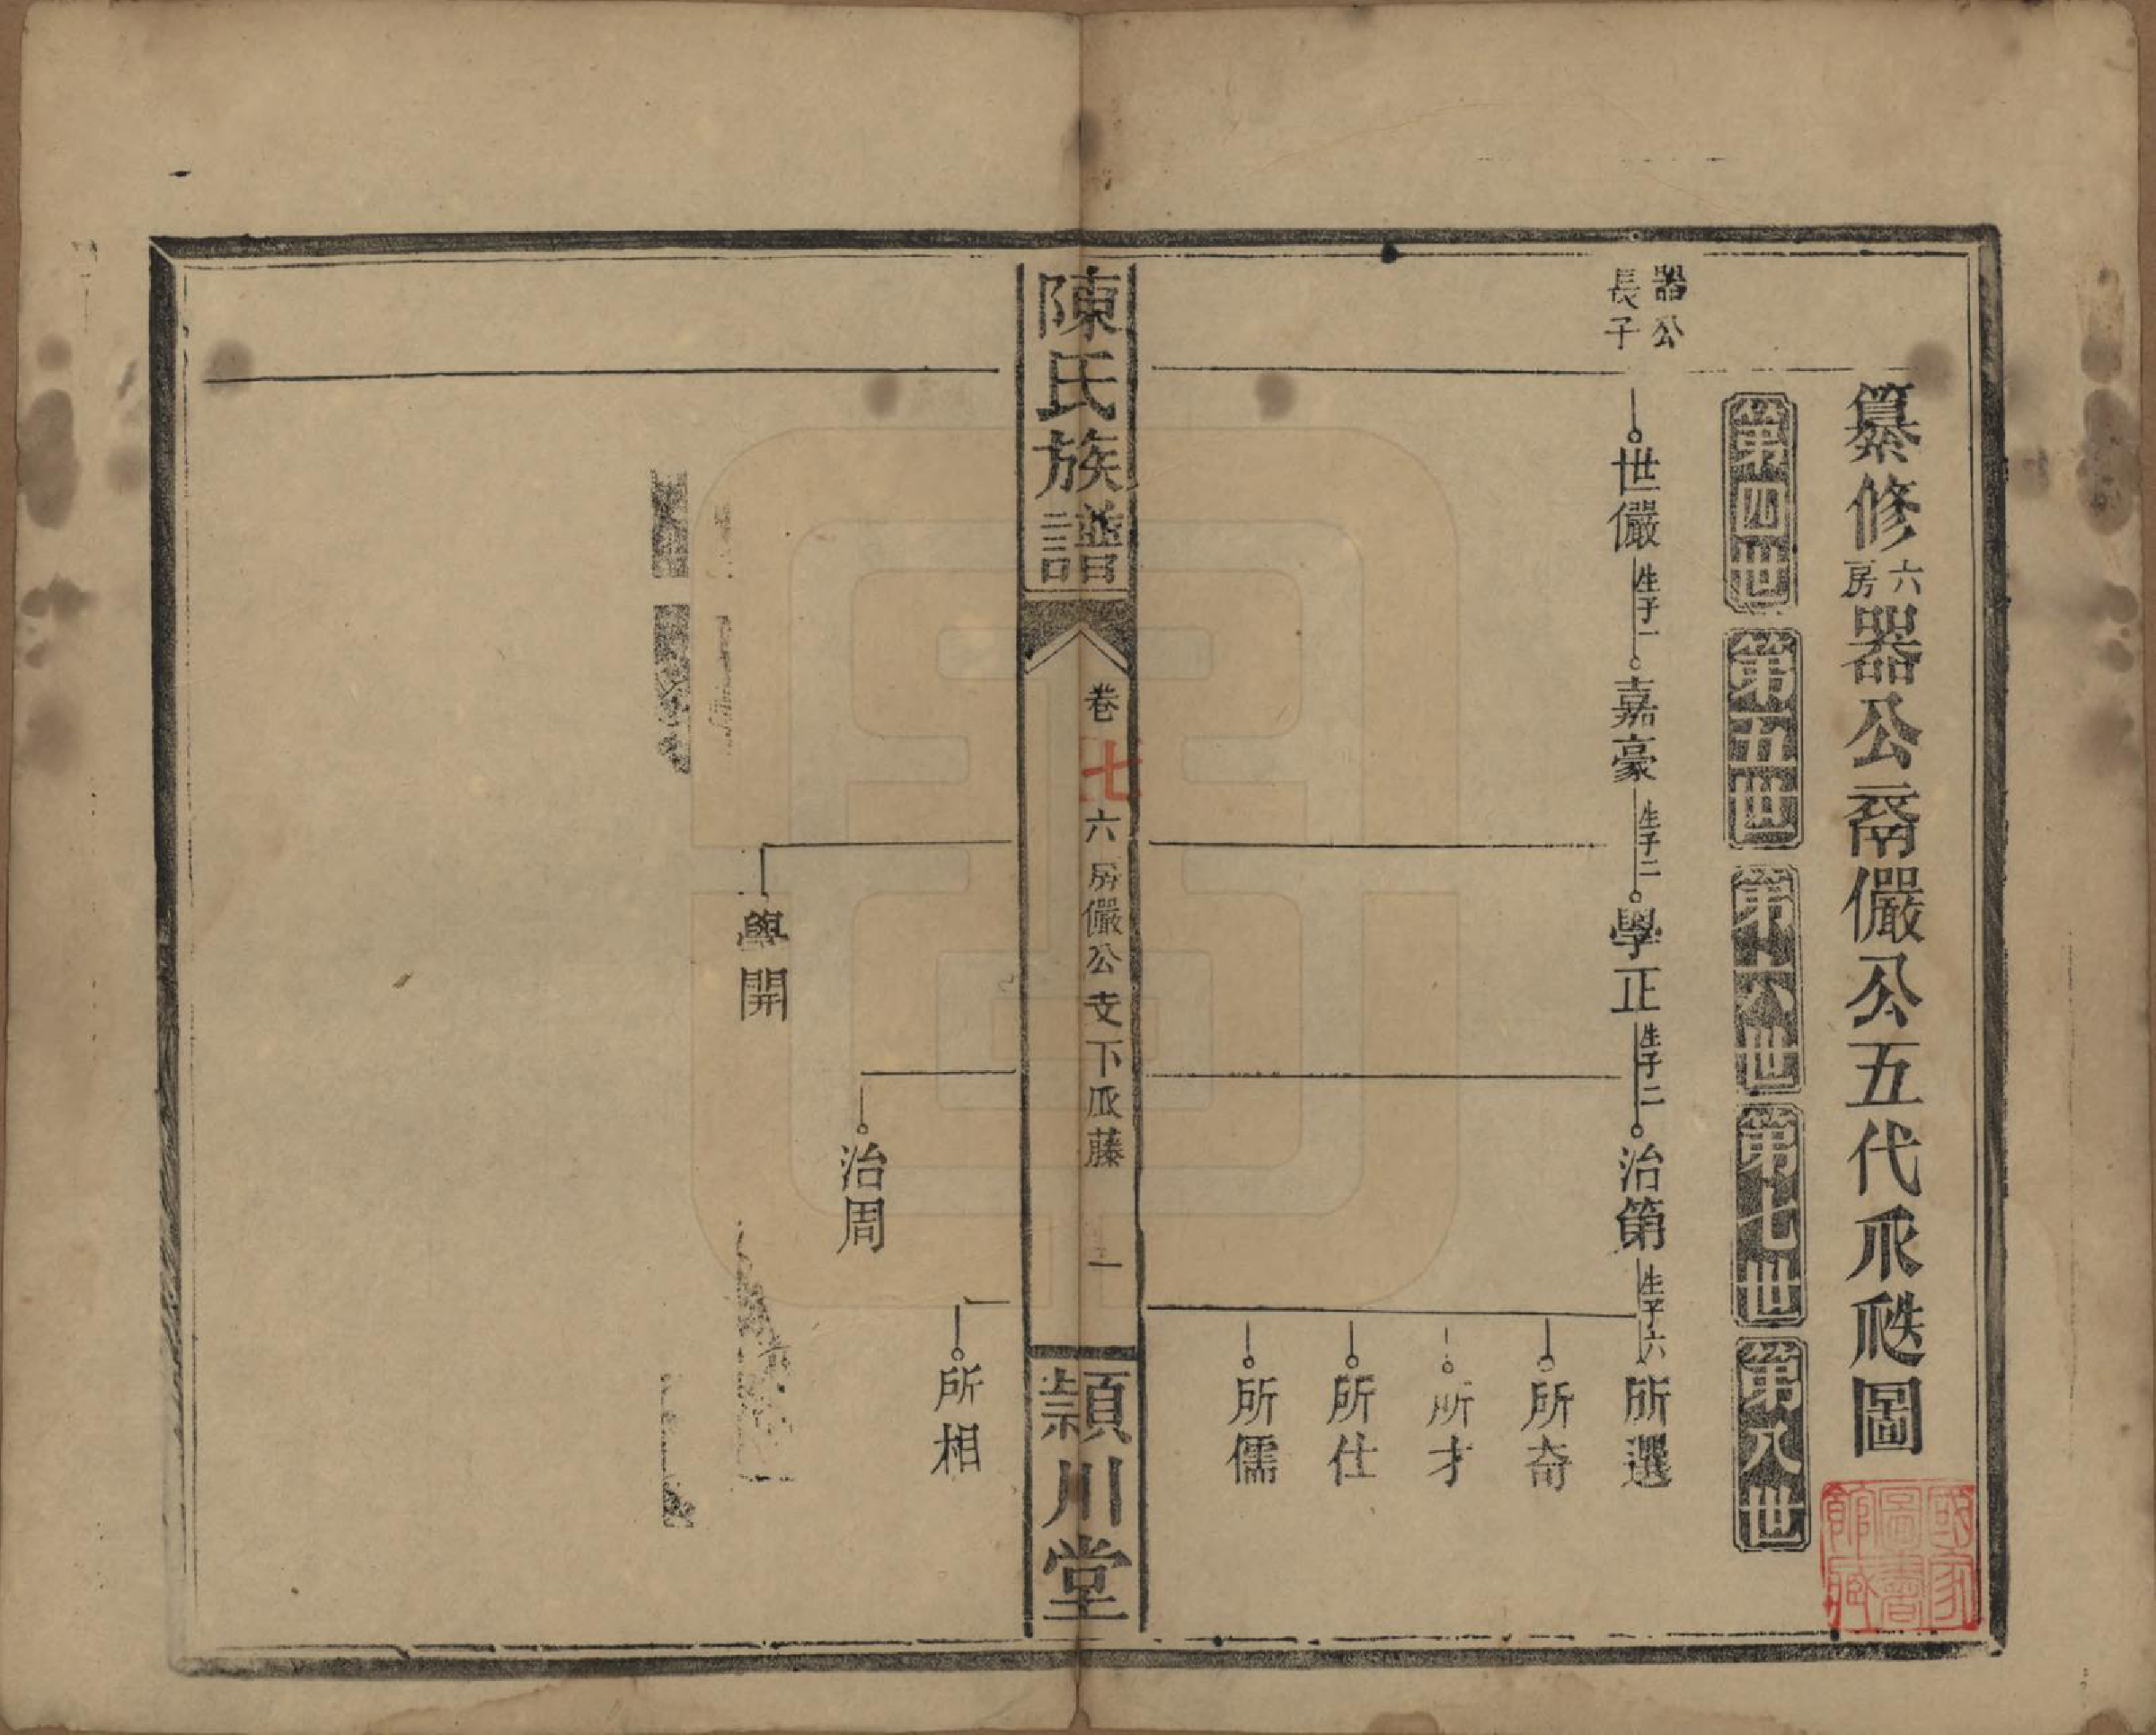 纂修六房器公裔儼公五代𠂢瓞圖
第四世
第五世
第六世
第七世
第八世
器公
長子
世儼
生子一
嘉豪
生子二
學正
生子二
治第
生子六
所選
所奇
所才
所仕
所儒
陳氏族譜
卷七
六房儼公支下瓜藤
一
潁川堂
所相
治周
學開
國家圖書館藏